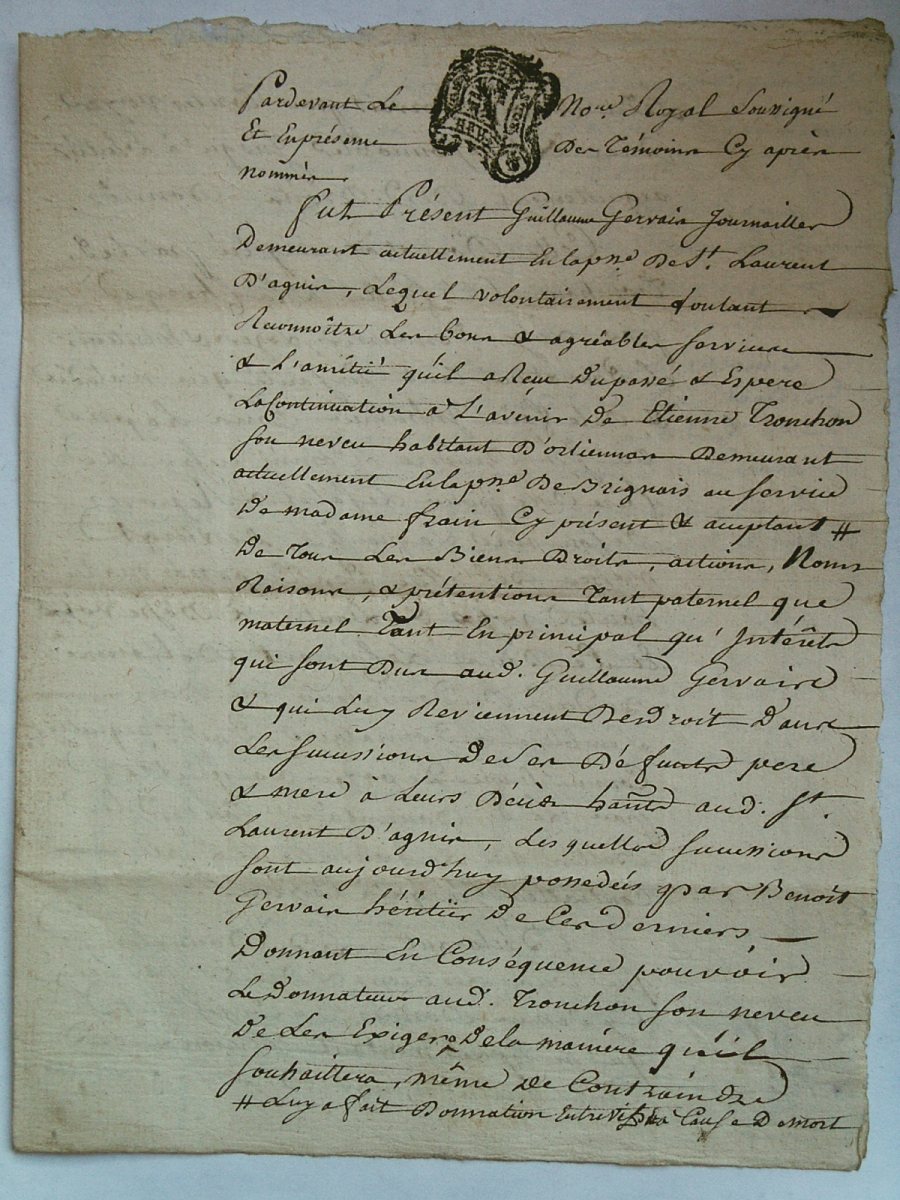 Pardevant Le No.re Royal Soussigné
Et En présence Des Témoins Cy après
nommés
fut Présent Guillaume Gervais Journaillier
Demeurant actuellement En la p.sse De St. Laurent
D'agnis, Lequel volontairement voulant
Reconnoître Les bons & agréables services
& L'amitié qu'il a Reçu Du passé & Espere
La Continuation à L'avenir De Etienne Tronchon
son neveu habitant D'orlienas Demeurant
actuellement En la p.sse De Brignais au service
De madame frain Cy présent & acceptant #
De Tous Les Biens Droits, actions, Noms
Raisons, & prétentions Tant paternel que
maternel Tant En principal qu'Intérêts
qui sont Dus aud. Guillaume Gervais
& qui Luy Reviennent De Droit Dans
Les successions De Ses Défunts pere
& mere à Leurs Décès hants aud. St.
Laurent D'agnis, Lesquelles successions
sont aujourd'huy possedés par Benoit
Gervais héritier De Ces Derniers
Donnant En Conséquence pouvoir
Le Donnateur aud. Tronchon son neveu
De Les Exiger De la manière qu'il
souhaittera, même De Contraindre
# Luy a fait Donnation Entre vifs à Cause De mort